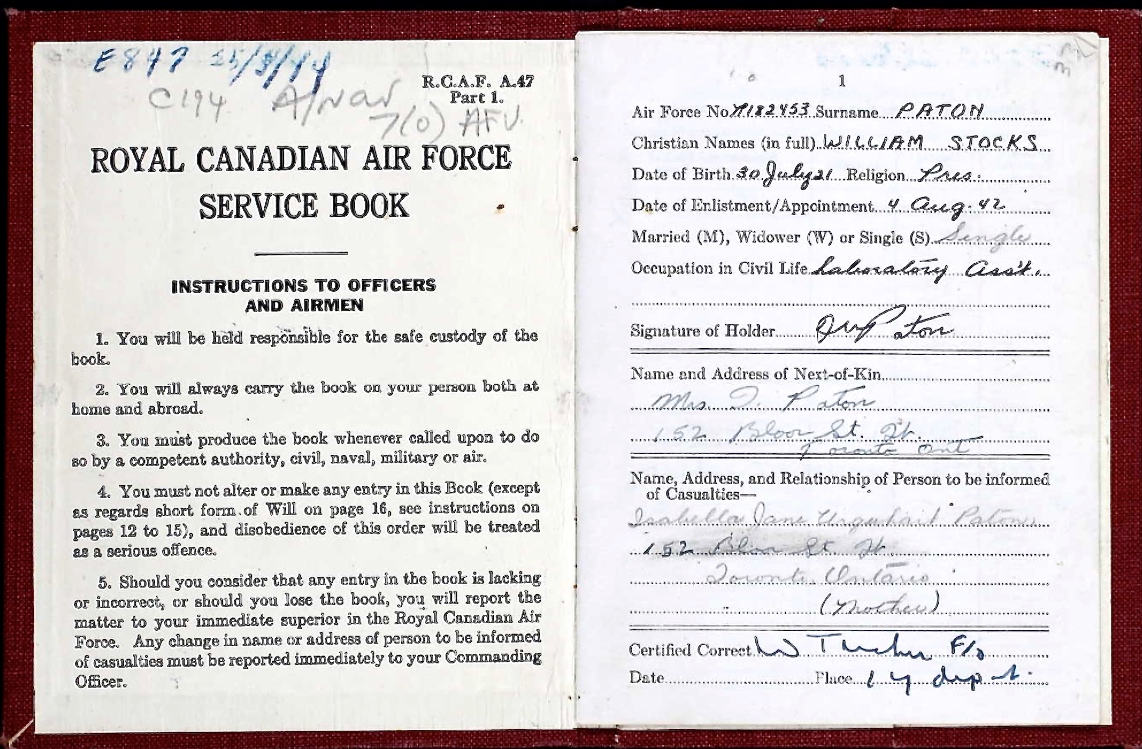 E847 25/8/44
C194 A/Nav
7(0) AFU.
R.C.A.F. A.47
Part 1.
ROYAL CANADIAN AIR FORCE
SERVICE BOOK
INSTRUCTIONS TO OFFICERS
AND AIRMEN
1. You will be held responsible for the safe custody of the
book.
2. You will always carry the book on your person both at
home and abroad.
3. You must produce the book whenever called upon to do
so by a competent authority, civil, naval, military or air.
4. You must not alter or make any entry in this Book (except
as regards short form of Will on page 16, see instructions on
pages 12 to 15), and disobedience of this order will be treated
as a serious offence.
5. Should you consider that any entry in the book is lacking
or incorrect, or should you lose the book, you will report the
matter to your immediate superior in the Royal Canadian Air
Force. Any change in name or address of person to be informed
of casualties must be reported immediately to your Commanding
Officer.
1
Air Force No. R182453 Surname PATON
Christian Names (in full) WILLIAM STOCKS
Date of Birth 30 July 21 Religion Pres.
Date of Enlistment/Appointment 4 Aug. 42
Married (M), Widower (W) or Single (S) Single
Occupation in Civil Life Laboratory Ass't.
Signature of Holder Paton
Name and Address of Next-of-Kin
Mrs. I. Paton
152 Bloor St. W.
Toronto Ont
Name, Address, and Relationship of Person to be informed
of Casualties—
Isabella Jane Urquhart Paton
152 Bloor St. W.
Toronto Ontario
(Mother)
Certified Correct W Tucker F/O
Date Place 1 Y depot.